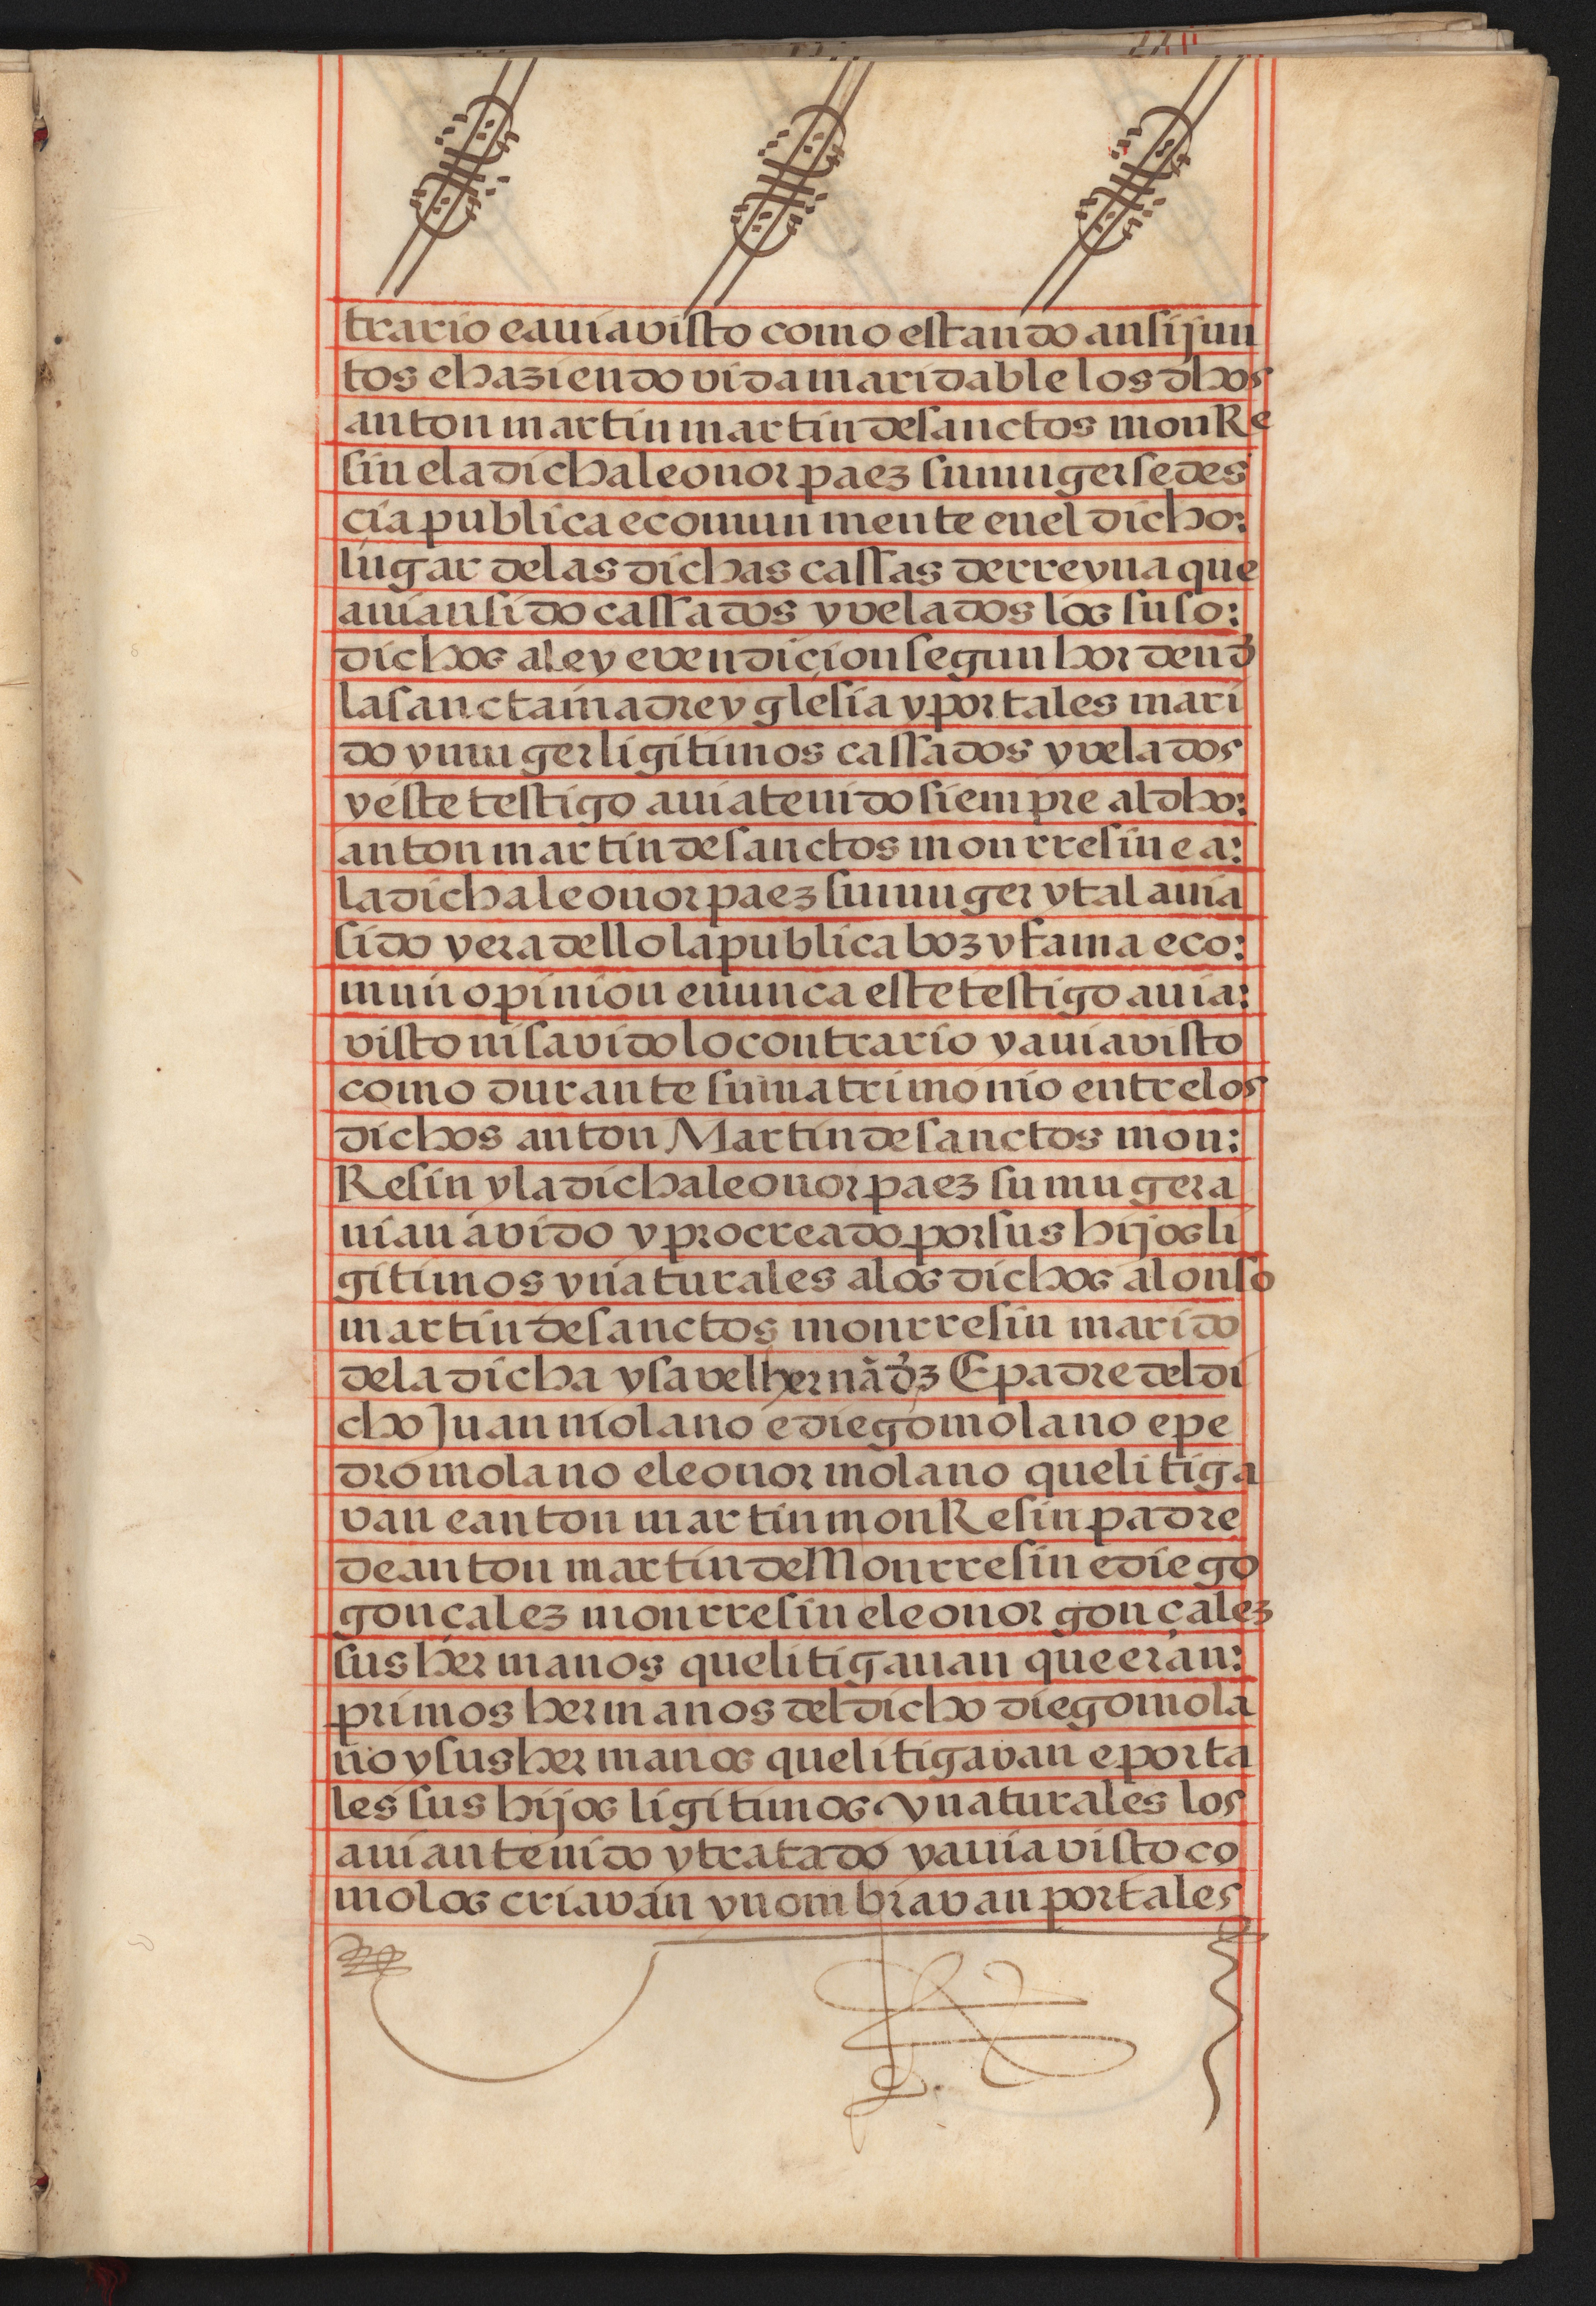 trario e auia visto como estando ansi jun
tos e haziendo vida maridable los dhos
anton martin martin de sanctos monRe
sin e la dicha leonor paez su muger se des
cia publica e comun mente en el dicho:
lugar de las dichas cassas de rreyna que
auian sido cassados y velados los suso:
dichos a ley e vendiçion segun horden đ
la sancta madre yglesia y por tales mari
do y muger ligitimos cassados y velados
y este testigo auia tenido siempre al dho:
anton martin de sanctos monrresin e a:
la dicha leonor paez su muger y tal auia
sido y era dello la publica boz y fama e co:
mun opinion e nunca este testigo auia:
visto ni savido lo contrario y auia visto
como durante su matrimonio entre los
dichos anton Martin de sanctos mon:
Resin y la dicha leonor paez su muger a
uian avido y procreado por sus hijos li
gitimos y naturales a los dichos alonso
martin de sanctos monrresin marido
de la dicha ysavel hernãđz E padre del di
cho Juan molano e diego molano e pe
dro molano e leonor molano que litiga
van e anton martin monResin padre
de anton martin de Monrresin e diego
gonçalez monrresin e leonor gonçalez
sus hermanos que litigauan que eran:
primos hermanos del dicho diego mola
no y sus hermanos que litigavan e por ta
les sus hijos ligitimos y naturales los
auian tenido y tratado y auia visto co
mo los criavan y nombravan por tales